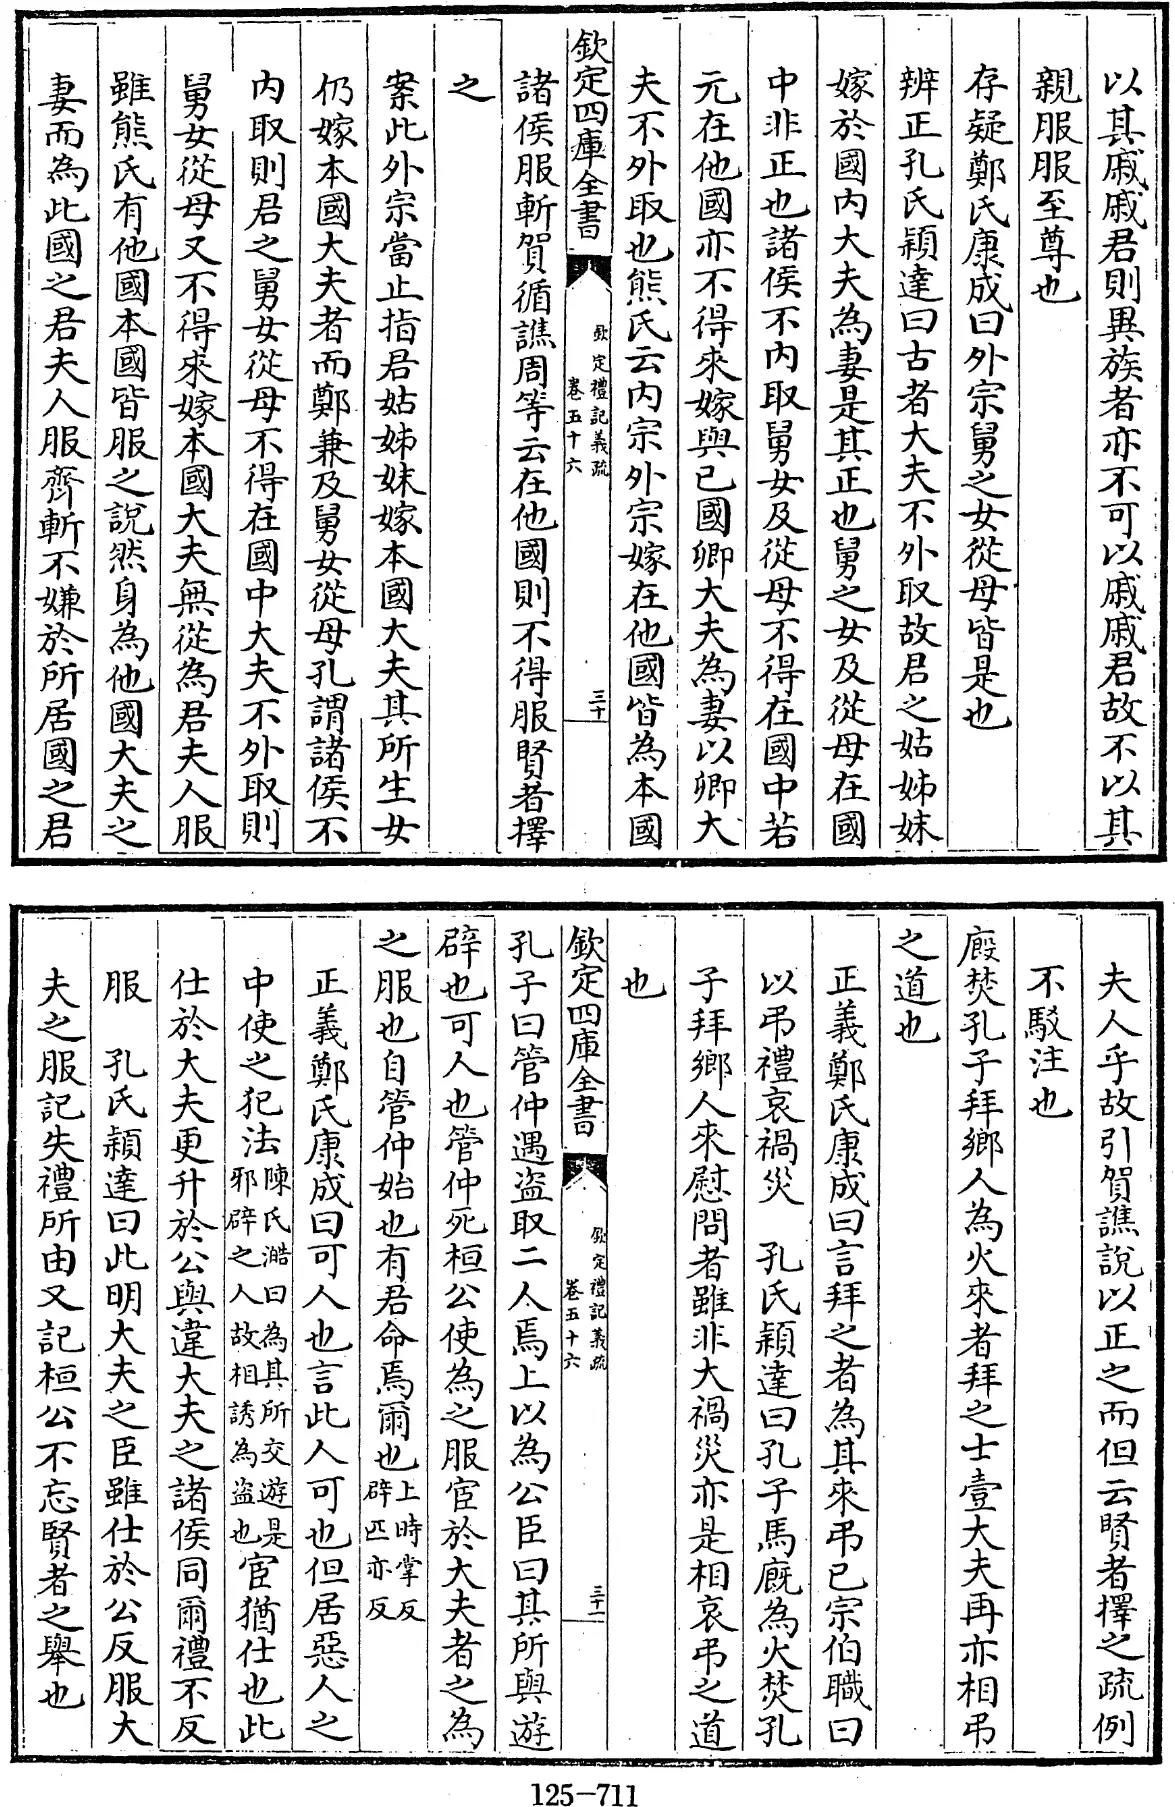 以其戚戚君則異族者亦不可以戚戚君故不以其
親服服至尊也
存疑鄭氏康成曰外宗舅之女從母皆是也
辨正孔氏穎達曰古者大夫不外取故君之姑姊妹
嫁於國內大夫為妻是其正也舅之女及從母在國
中非正也諸侯不內取舅女及從母不得在國中若
元在他國亦不得來嫁與已國卿大夫為妻以卿大
夫不外取也熊氏云內宗外宗嫁在他國皆為本國
欽定四庫全書
欽定禮記義疏
卷五十六
三十
諸侯服斬賀循譙周等云在他國則不得服賢者擇
之
案此外宗當止指君姑姊妹嫁本國大夫其所生女
仍嫁本國大夫者而鄭兼及舅女從母孔謂諸侯不
內取則君之舅女從母不得在國中大夫不外取則
舅女從母又不得來嫁本國大夫無從為君夫人服
雖熊氏有他國本國皆服之說然身為他國大夫之
妻而為此國之君夫人服齊斬不嫌於所居國之君
夫人乎故引賀譙說以正之而但云賢者擇之疏例
不駁注也
廄焚孔子拜鄉人為火來者拜之士壹大夫再亦相弔
之道也
正義鄭氏康成曰言拜之者為其來弔已宗伯職曰
以弔禮哀禍災　孔氏穎達曰孔子馬廐為火焚孔
子拜鄉人來慰問者雖非大禍災亦是相哀弔之道
也
欽定四庫全書
欽定禮記義疏
卷五十六
三十一
孔子曰管仲遇盜取二人焉上以為公臣曰其所與遊
辟也可人也管仲死桓公使為之服宦於大夫者之為
之服也自管仲始也有君命焉爾也上時掌反辟匹亦反
正義鄭氏康成曰可人也言此人可也但居惡人之
中使之犯法陳氏澔曰為其所交遊是邪辟之人故相誘為盜也宦猶仕也此
仕於大夫更升於公與違大夫之諸侯同爾禮不反
服　孔氏穎達曰此明大夫之臣雖仕於公反服大
夫之服記失禮所由又記桓公不忘賢者之舉也
125-711